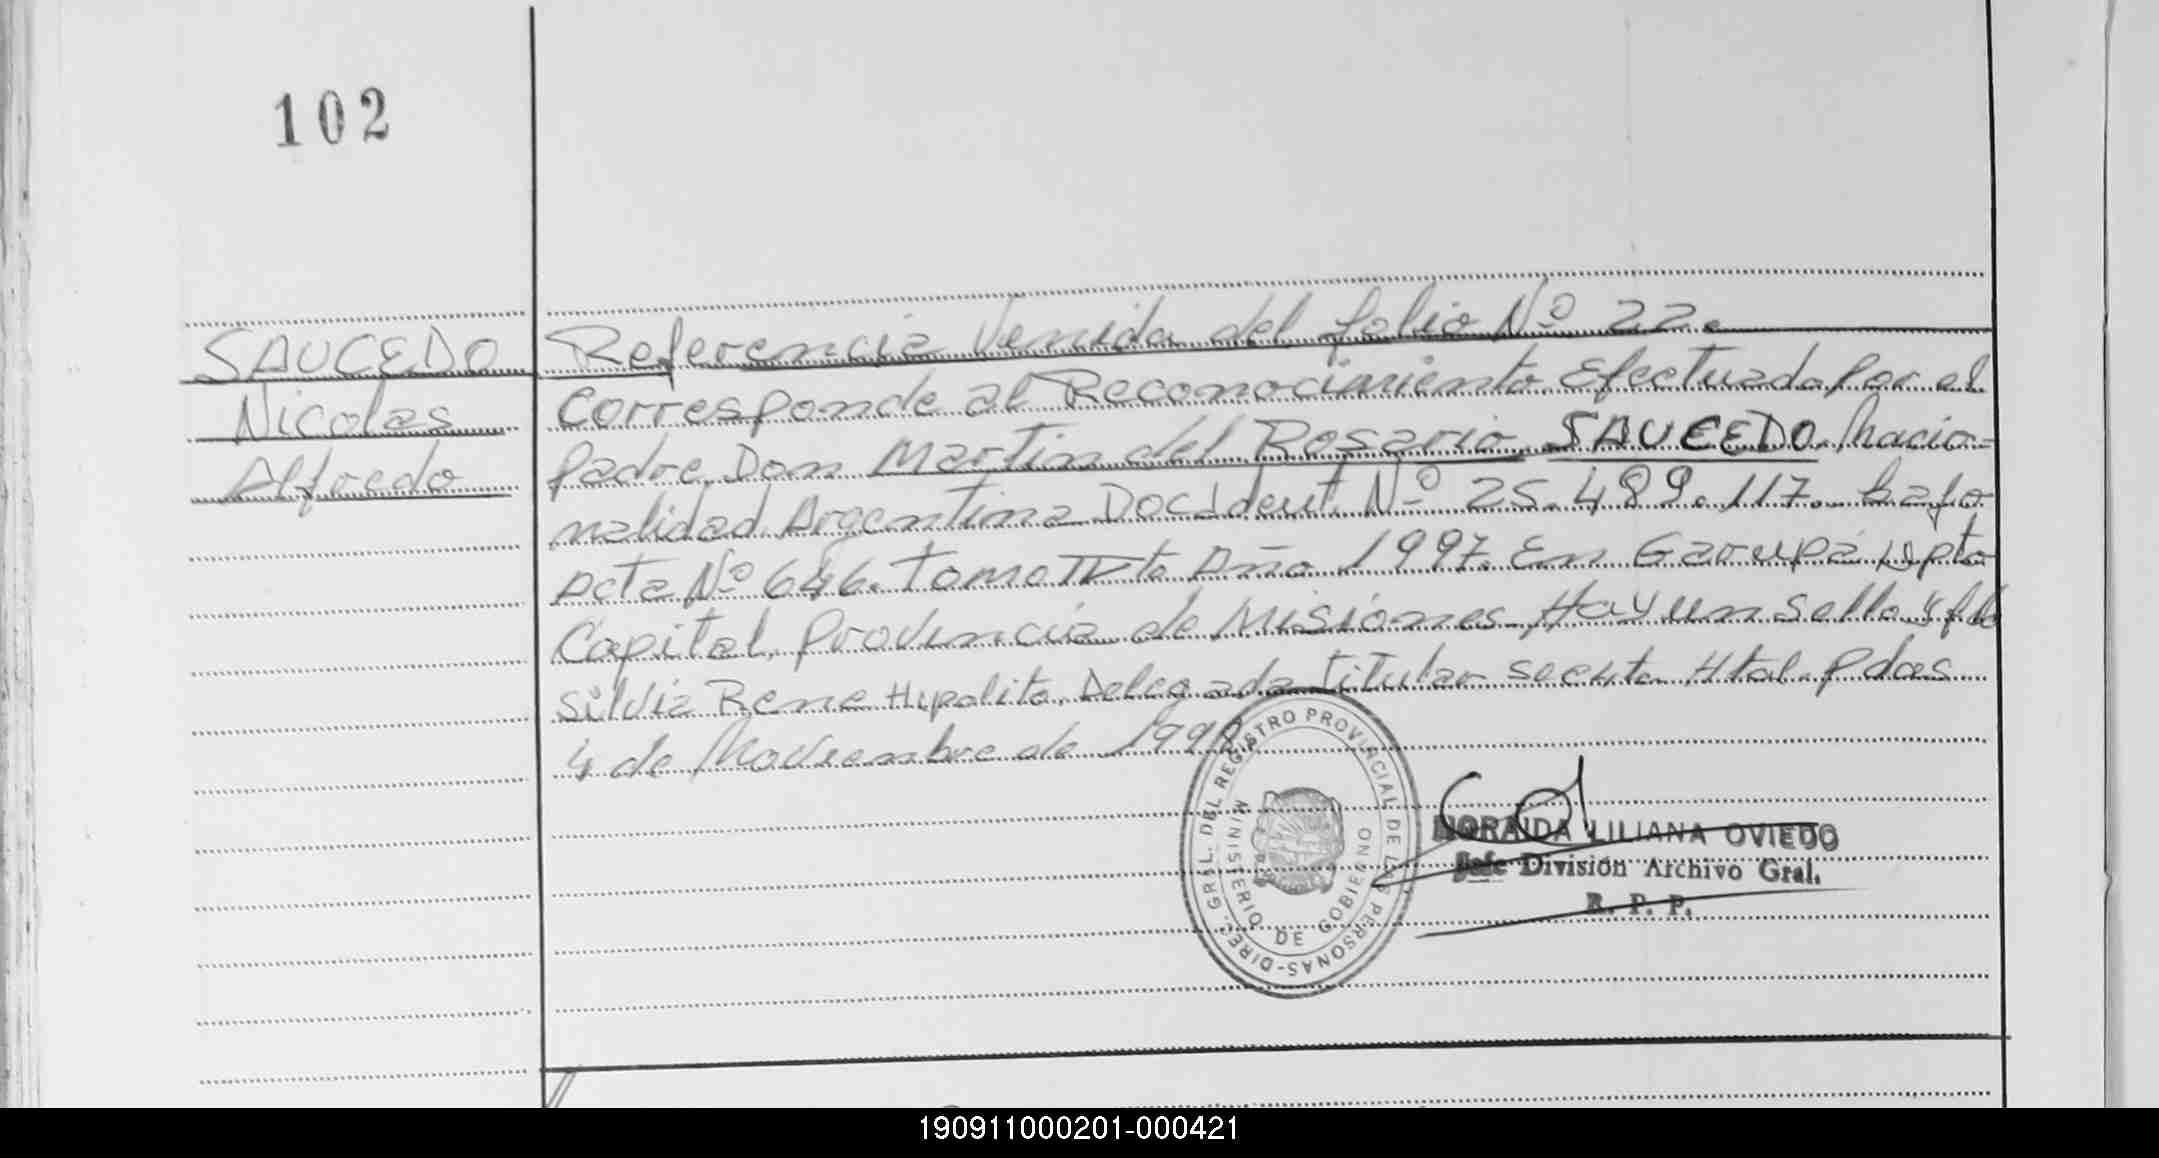 102
SAUCEDO
Nicolas
Alfredo
Referencia Venida del folio Nº 22.
Corresponde al Reconocimiento Efectuado por el
padre Don Martin del Rosario SAUCEDO, nacio=
nalidad Argentina Doc Ident. Nº 25.489.117. bajo
Acta Nº 646. Tomo IVto Año 1997. En Garupá Dpto
Capital, Provincia de Misiones. Hay un sello y fdo
Silvia Rene Hipolito, Delegada titular Htal. Pdas
4 de Noviembre de
DIREC. GRAL. DEL REGISTRO PROVINCIAL DE LAS PERSONAS-
MINISTERIO DE GOBIERNO
NORAIDA LILIANA OVIEDO
Jefe División Archivo Gral.
R. P. P.
190911000201-000421